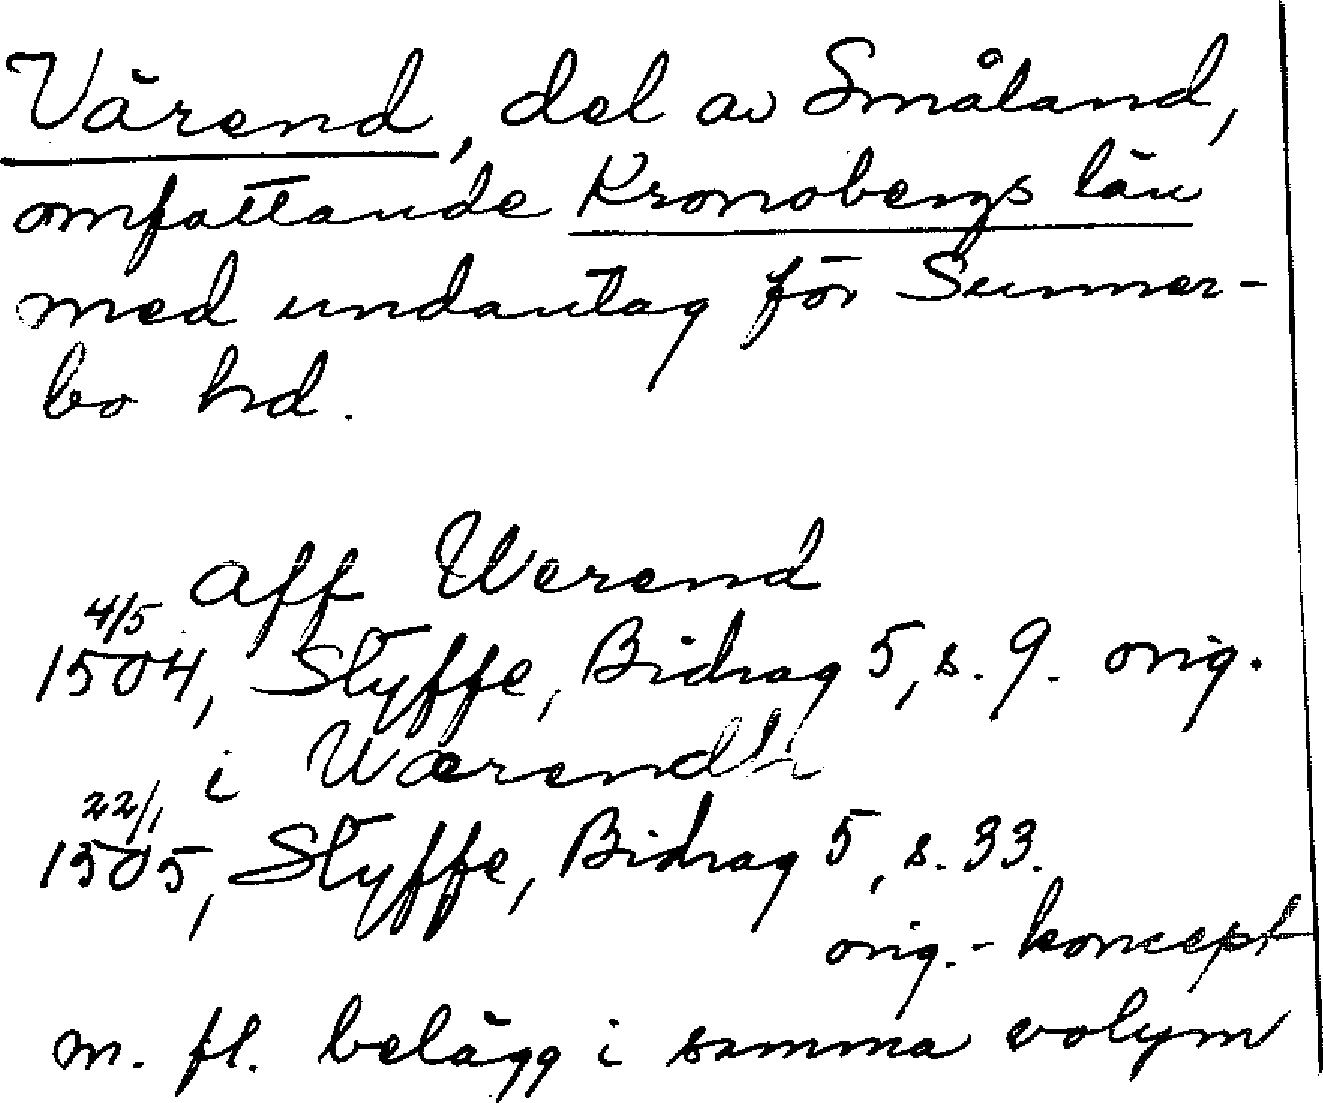 Värend, del av Småland,
omfattande Kronobergs län
med undantag för Sunner-
bo hd.
aff Werend
4/5
1504, Styffe, Bidrag 5, s. 9. orig.
i Wærendh
22/1
1505, Styffe, Bidrag 5, s. 33.
orig.-koncept
m. fl. belägg i samma volym